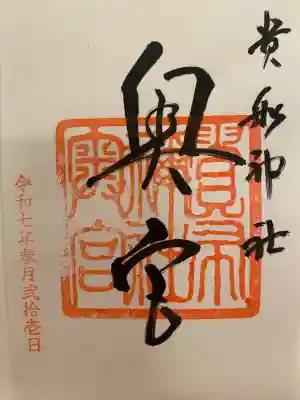 貴船神社
奥宮
貴船神社奥宮
令和七年参月弐拾壱日